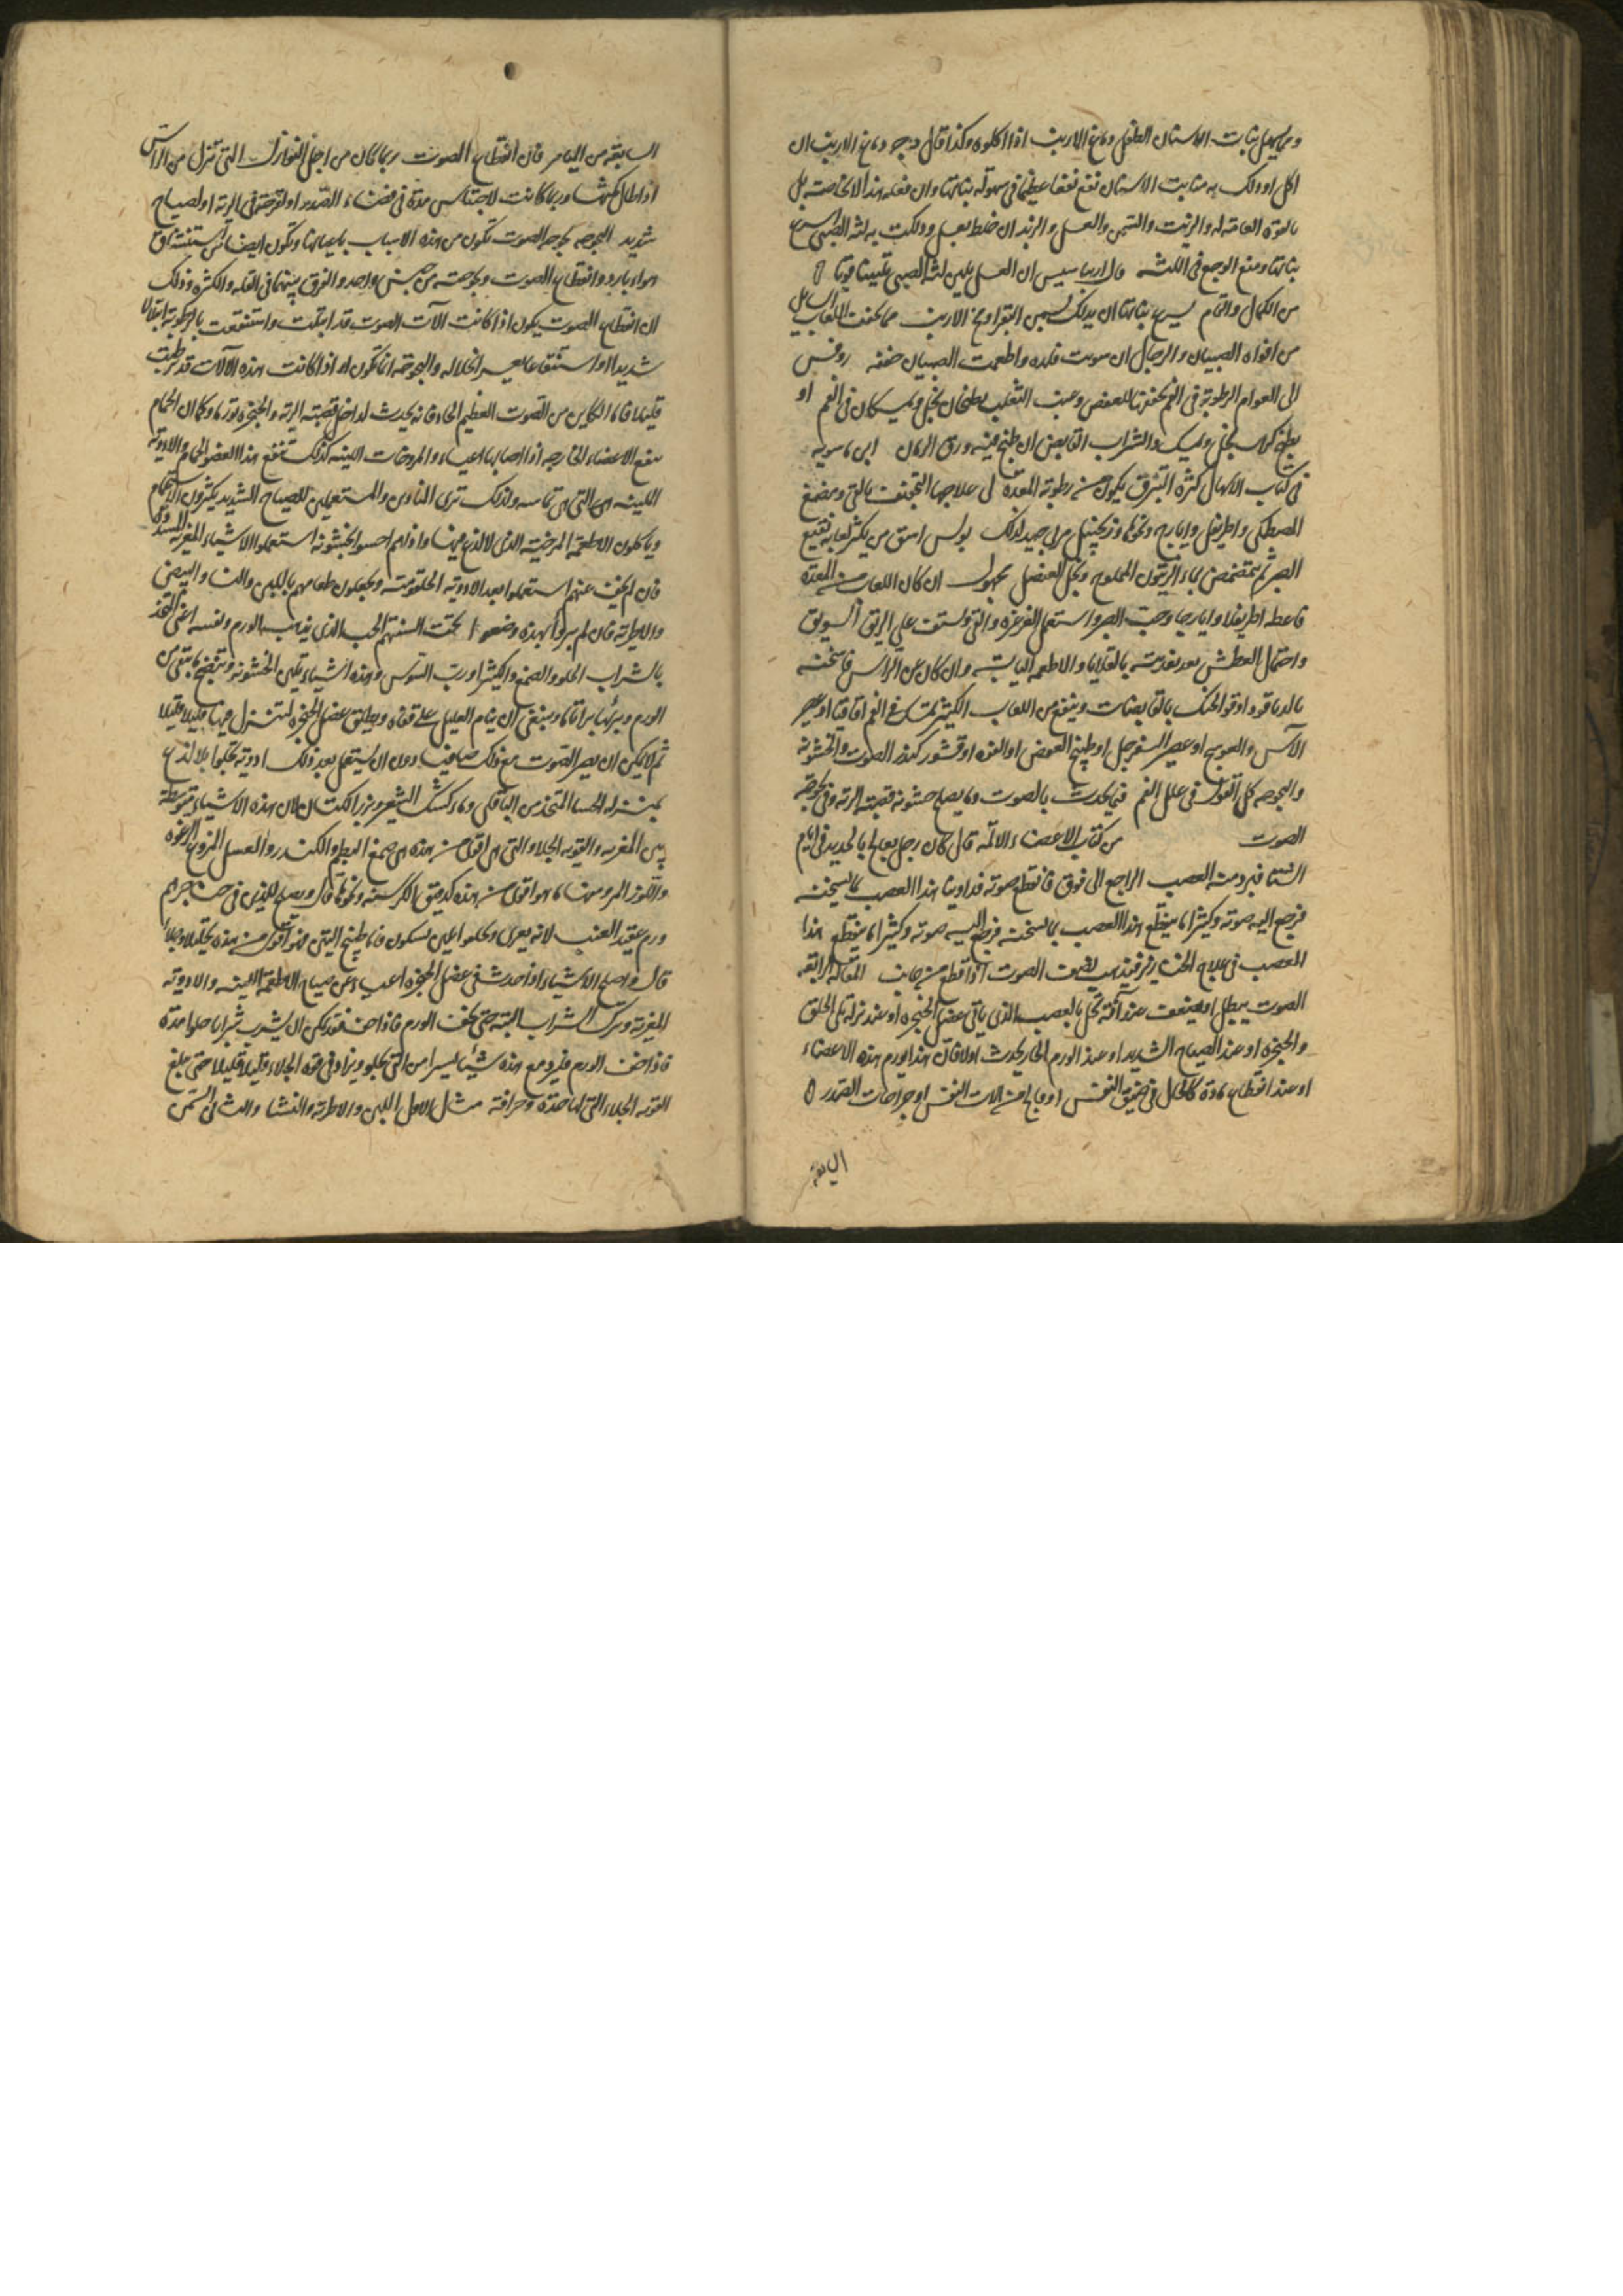 ومما يسهل نبات الاسنان الطفل دماغ الارنب اذا اكلوه وكذا قال د ج دماغ الارنب ان
اكل او دلك به منابت الاسنان نفع نفعا عظيما في سهولة نباتها وان فعله هذا لا بخاصته بل
بالقوة العامة له والزيت والسمن والعسل والزبد ان خلط بعسل ودلكت به لثة الصبي اسرع
نباتها ومنع الوجع في اللثة قال اريباسيس ان العسل يلين لثة الصبي تليينا قويا
من الكمال والتمام يسرع نباتها ان يدلك بسمن البقر او مخ الارنب مما يجفف اللعاب السايل
من افواه الصبيان والرجال ان سويت فلده واطعمت الصبيان خفه روفس
الى العوام الرطوبة في الفم يجففها العفص وعنب الثعلب يطبخان بخل ويمسكان في الفم او
يطبخ كراث بخل ويمسك والشراب القابض ان طبخ فيه ورق الرمان ابن ماسويه
في كتاب الاسهال كثرة التبزق يكون من رطوبة المعدة لى علاجها التجفيف بالقي ومضغ
المصطكى واطريفل وايارج ونحوها وزنجبيل مربى جيد لذلك بولس اسق من يكثر لعابه نقيع
الصبر ثم يتمضمض بماء الزيتون المملوح وبخل العنصل مجهول ان كان اللعاب من المعدة
فاعطه اطريفلا وايارجا وحب الصبر واستعمل الغرغرة والقي وليستف على الريق السويق
واحتمال العطش بعد تغذيته بالقلايا والاطعمة اليابسة وان كان من الراس فاسخنه
بالدياقودا وقو الحنك بالقابضات وينفع من اللعاب الكثير يمسك في الفم اقاقيا او عصير
الآس والعوسج او عصير السفرجل او طبيخ العفص او الفوه او قشور كندر الصوت والخشونة
والبحوحه كل القول في علل الفم فيما يحدث بالصوت وما يصلح خشونة قصبة الرية وفي بحوحة
الصوت من كتاب الاعضاء الالمة قال كان رجل يعالج بالحديد في ايام
الشتا فبردت العصب الراجع الى فوق فانقطع صوته فداوينا هذا العصب بما يسخنه
فرجع اليه صوته وكثيرا ما ينقطع هذا العصب بما يسخنه فرجع اليه صوته وكثيرا ما ينقطع هذا
العصب في علاج الخنازير فيذهب لنصف الصوت اذا قطع من جانب المقالة الرابعة
الصوت يبطل او يضعف عند آفة تحل بالعصب الذي ياتي عضل الحنجرة او عند نزلة الى الحلق
والحنجرة او عند الصياح الشديد او عند الورم الحار يحدث اولا فان هذا يورم هذه الاعضاء
او عند انقطاع مادة كالحال في ضيق النفس او فالج في الات النفس او جراحات الصدر
السابعة
السابعة من اليامر قال انقطاع الصوت ربما كان من اجل النوازل التي تنزل من الراس
اذا طال مكثها وربما كانت لاحتباس مدة في فضاء الصدر او لقرحة في الرية او لصياح
شديد البحوحه بحوحة الصوت تكون من هذه الاسباب باعيانها وتكون ايضا من استنشاق
هواء بارد وانقطاع الصوت وبحوحته من جنس واحد والفرق بينهما في القلة والكثرة وذلك
ان انقطاع الصوت يكون اذا كانت آلات الصوت قد ابتلت واستنقعت بالرطوبة ابتلالا
شديدا او استنقاعا يعسر انحلاله والبحوحة انما تكون اذا كانت هذه الآلات قد رطبت
قليلا فاما الكاين من الصوت العظيم الحاد فانه يحدث لداخل قصبة الرية والحنجرة تورما وكما ان الحمام
ينفع الاعضاء الخارجه اذا اصابها اعياء والمروخات اللينه كذلك تنفع هذا العضو الحمام والادوية
اللينه هى التي هى تماسه ولذلك ترى المنادين والمستعملين للصياح الشديد يكثرون الاستحمام
وياكلون الاطعمة المرخية الذى لا لذع فيها واذا هم احسوا بخشونة استعملوا الاشياء المغرية المسددة
فان لم يخف عنهم استعملوا بعد الادوية الحلقومية ويجعلون طعامهم باللبن والنشا والبيض
والاطرية فان لم يبروا بهذه وضعوا تحت السنتهم الحب الذي يذهب بالورم ونفسه اعنى المتخذ
بالشراب الحلو والصمغ والكثيرا ورب السوس وهذه اشياء تلين الخشونة وتنضج ما بقي من
الورم ويبرئها برا تاما وينبغي ان ينام العليل على قفاه ويطلق عضل الحنجرة لينزل فيها قليلا قليلا
ثم لا يمكن ان يصير الصوت مع ذلك صافيا دون ان يستعمل بعد ذلك ادوية تجلوا بلا لذع
بمنزلة الحسا المتخذ من الباقلى وماء كشك الشعير وبزر الكتان لان هذه الاشياء متوسطة
بين المغرية والقوية الجلاء والتي هى اقوى من هذه هى صمغ البطم والكندر والعسل المنزوع الرغوة
واللوز المر ومنها ما هو اقوى من هذه كدقيق الكرسنه ونحوها قال ويصلح للذين في حناجرهم
ورم عقيد العنب لانه يغرى ويجلوا فاما طبيخ التين فهو اقوى من هذه تحليلا وجلاء
قال واصلح الاشياء اذا حدث في عضل الحنجرة اعياء عن صياح الاطعمة اللينة والادوية
المغرية وترك الشراب البتة حتى يخف الورم فاذا خف فقد يمكن ان يشرب شرابا حلوا مدة
فاذا خف الورم فليزد مع هذه شيئا يسيرا من التي تجلو ويزاد في قوة الجلاء قليلا قليلا حتى يبلغ
القوية الجلاء التي لها حدة وحرافة مثال الاول اللبن والاطرية والنشا والثانى السمن